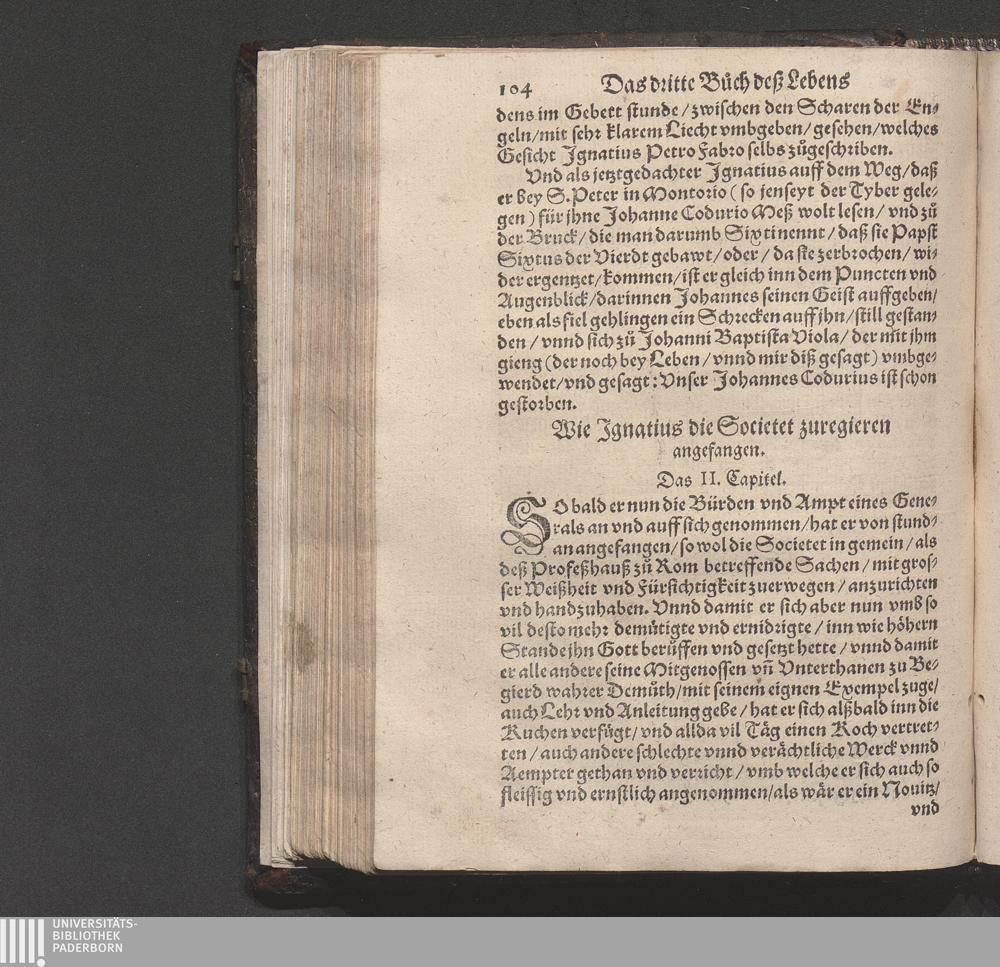 104 Das dritte Bůch deß Lebens
dens im Gebett stunde / zwischen den Scharen der En-
geln / mit sehr klarem Liecht vmbgeben / gesehen / welches
Gesicht Ignatius Petro Fabro selbs zůgeschriben.
Vnd als jetztgedachter Ignatius auff dem Weg / daß
er bey S. Peter in Montorio ( so jenseyt der Tyber gele-
gen ) für jhne Johanne Codurio Meß wolt lesen / vnd zů
der Bruck / die man darumb Sixti nennt / daß sie Papst
Sixtus der Vierdt gebawt / oder / da sie zerbrochen / wi-
der ergentzet / kommen / ist er gleich inn dem Puncten vnd
Augenblick / darinnen Johannes seinen Geist auffgeben /
eben als fiel gehlingen ein Schrecken auff jhn / still gestan-
den / vnnd sich zů Johanni Baptista Viola / der mit jhm
gieng (der noch bey Leben / vnnd mir diß gesagt) vmbge-
wendet / vnd gesagt : Vnser Johannes Codurius ist schon
gestorben.
Wie Ignatius die Societet zuregieren
angefangen.
Das II. Capitel.
SO bald er nun die Bürden vnd Ampt eines Gene-
rals an vnd auff sich genommen / hat er von stund-
an angefangen / so wol die Societet in gemein / als
deß Profeßhauß zů Rom betreffende Sachen / mit gros-
ser Weißheit vnd Fürsichtigkeit zuerwegen / anzurichten
vnd handzuhaben. Vnnd damit er sich aber nun vmb so
vil desto mehr demütigte vnd ernidrigte / inn wie höhern
Stande jhn Gott berůffen vnd gesetzt hette / vnnd damit
er alle andere seine Mitgenossen vñ Vnterthanen zu Be-
gierd wahrer Demůth / mit seinem eignen Exempel zuge /
auch Lehr vnd Anleitung gebe / hat er sich alßbald inn die
Kuchen verfügt / vnd allda vil Täg einen Koch vertret-
ten / auch andere schlechte vnnd verächtliche Werck vnnd
Aempter gethan vnd verricht / vmb welche er sich auch so
fleissig vnd ernstlich angenommen / als wär er ein Nouitz /
vnd
UNIVERSITÄTS-
BIBLIOTHEK
PADERBORN